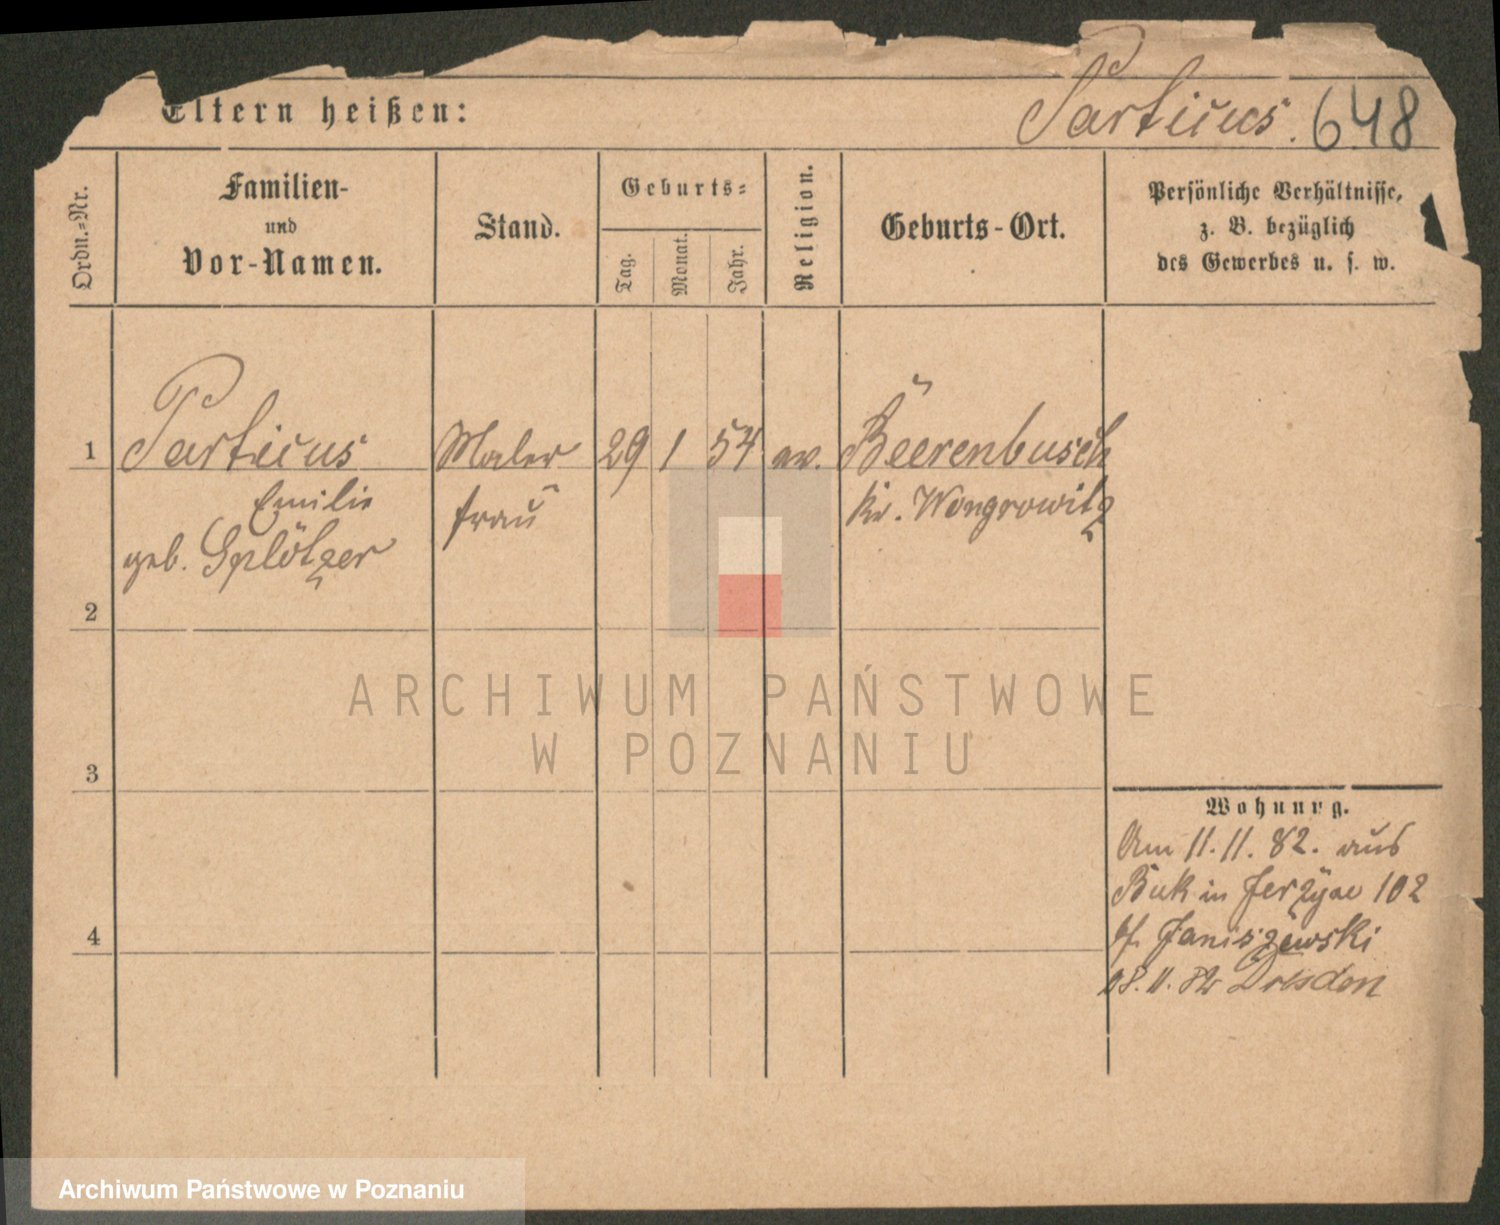 Eltern heißen: Particus. 648
Ordn.-Nr.
Familien-
und
Vor-Namen.
Stand.
Geburts-
Tag. Monat. Jahr.
Religion.
Geburts-Ort.
Persönliche Verhältnisse,
z. B. bezüglich
des Gewerbes u. s. w.
1 Particus Maler 29 1 54 ev. Beerenbusch
Emilie frau Kr. Wongrowitz
geb. Splötzer
2
3
4
ARCHIWUM PAŃSTWOWE
W POZNANIU
Wohnung.
Am 11.11.82. aus
Buk in Jerzyce 102
bei Janiszewski
18.11.82 Dresden
Archiwum Państwowe w Poznaniu